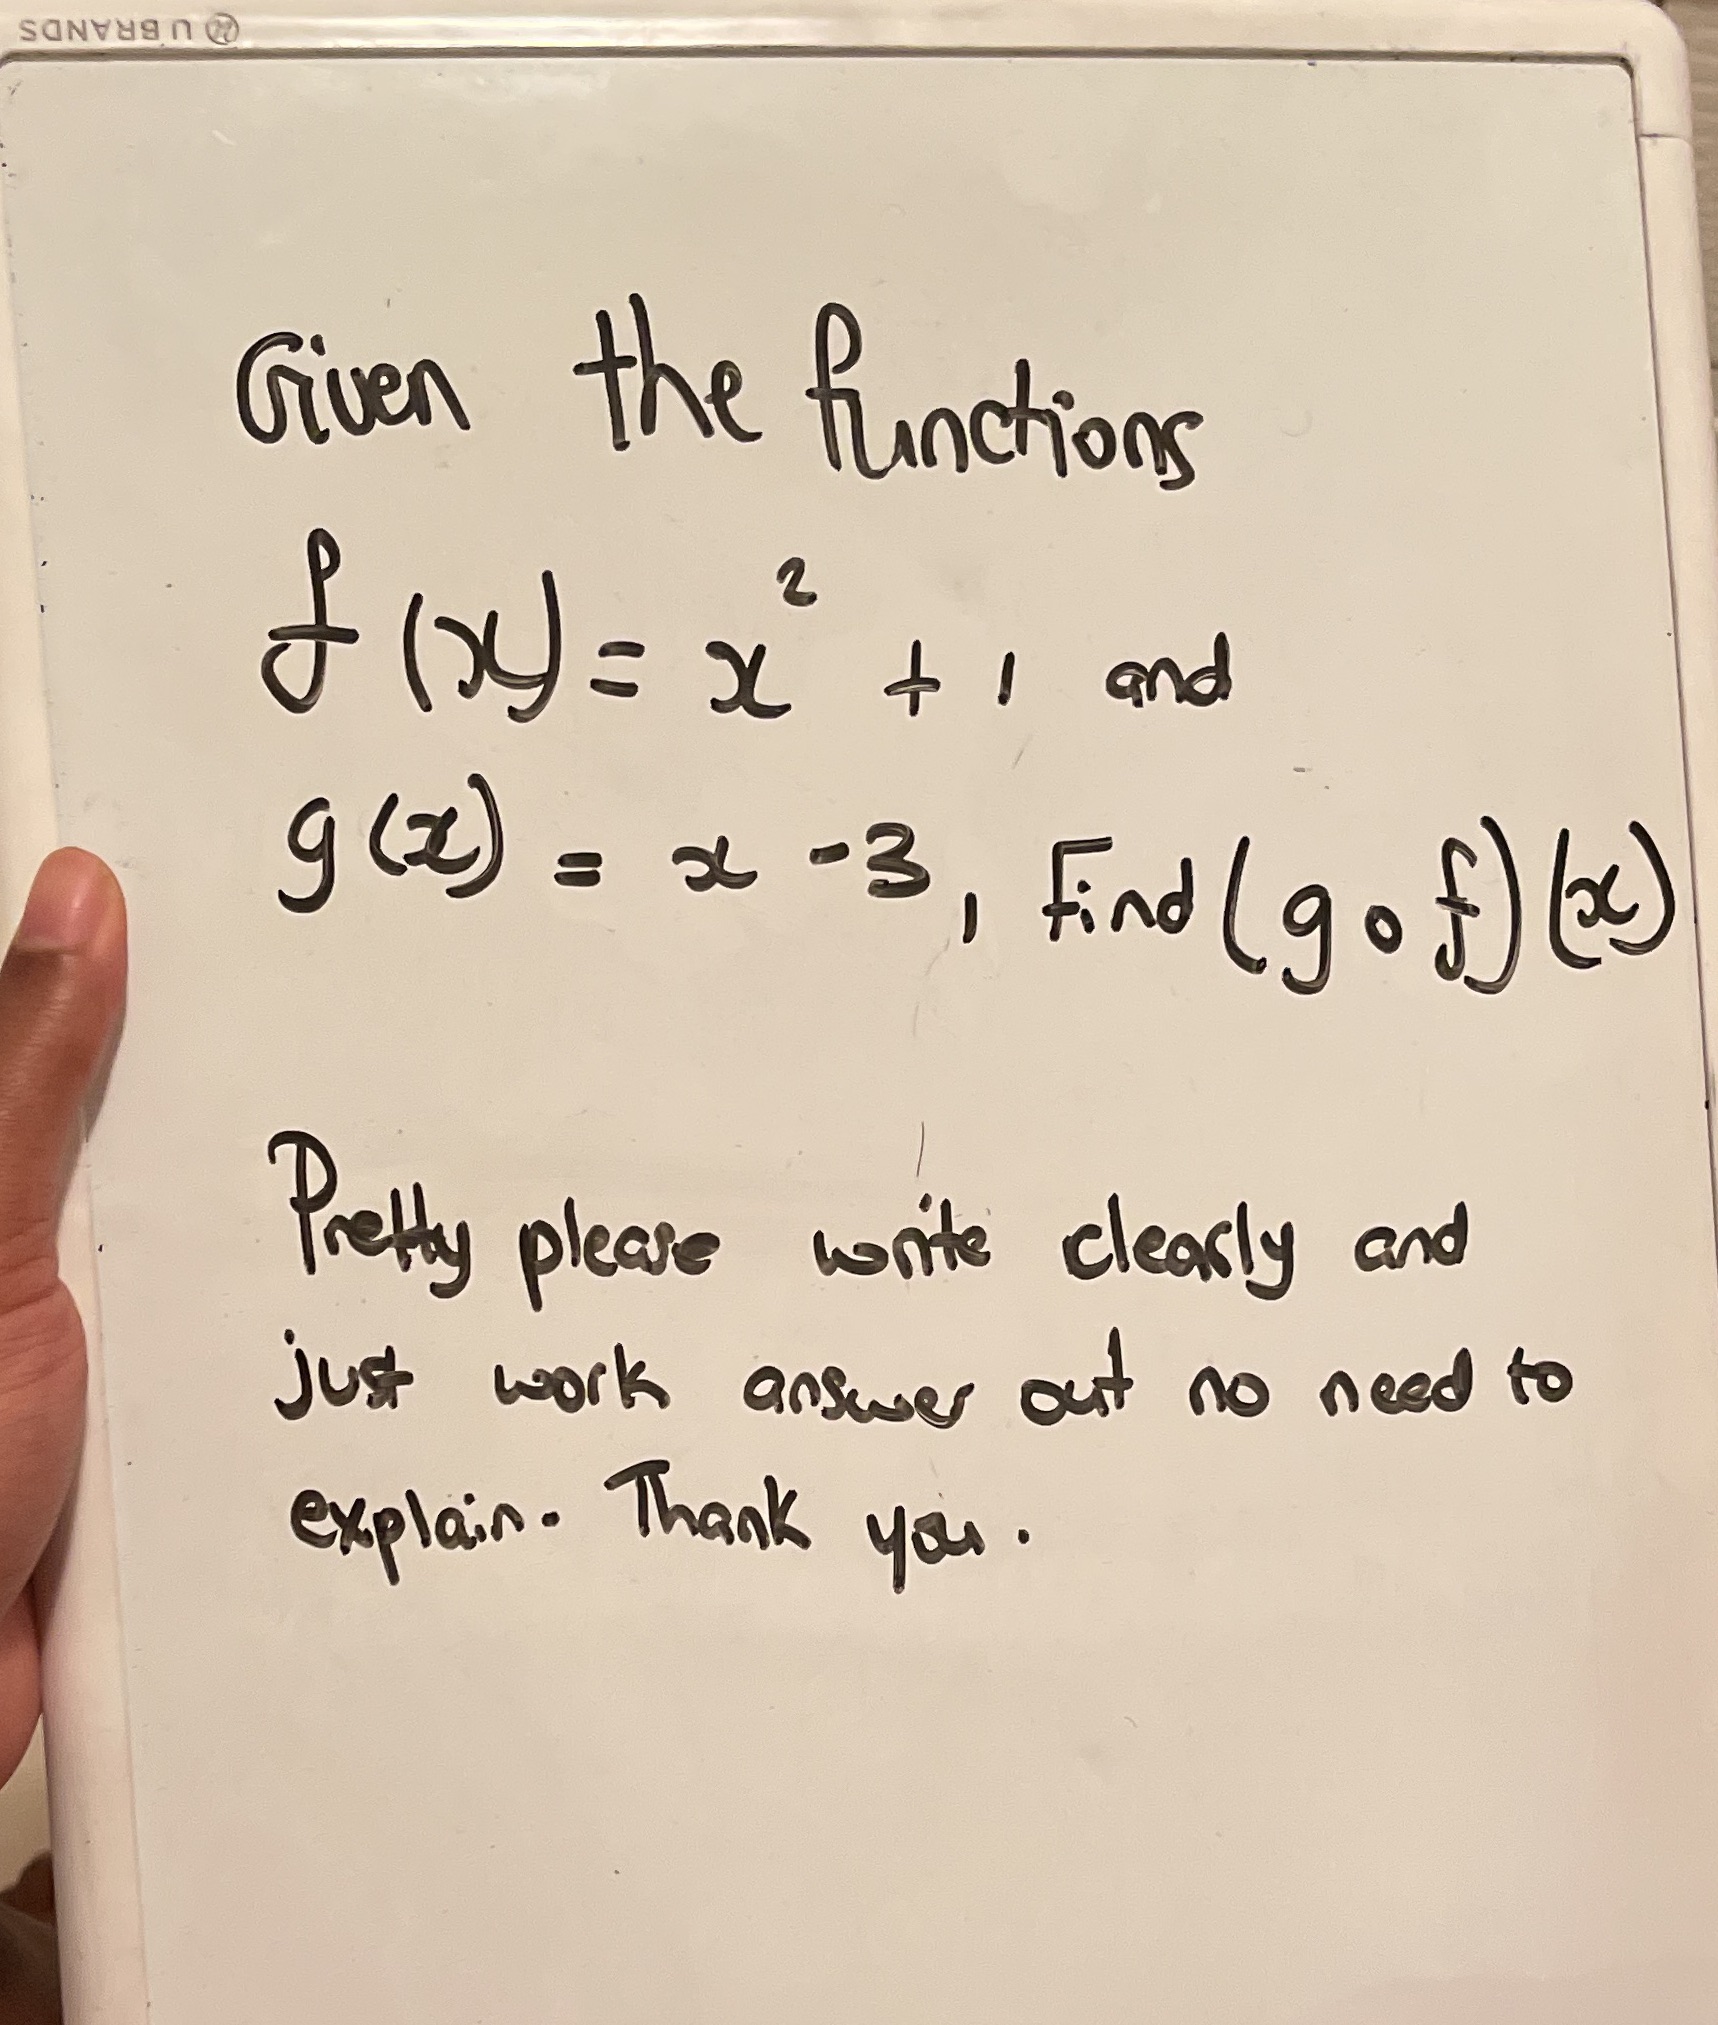 U BRANDS
Given the functions
f(x) = x² + 1 and
g(x) = x - 3, Find (g o f)(x)
Pretty please write clearly and
just work answer out no need to
explain. Thank you.